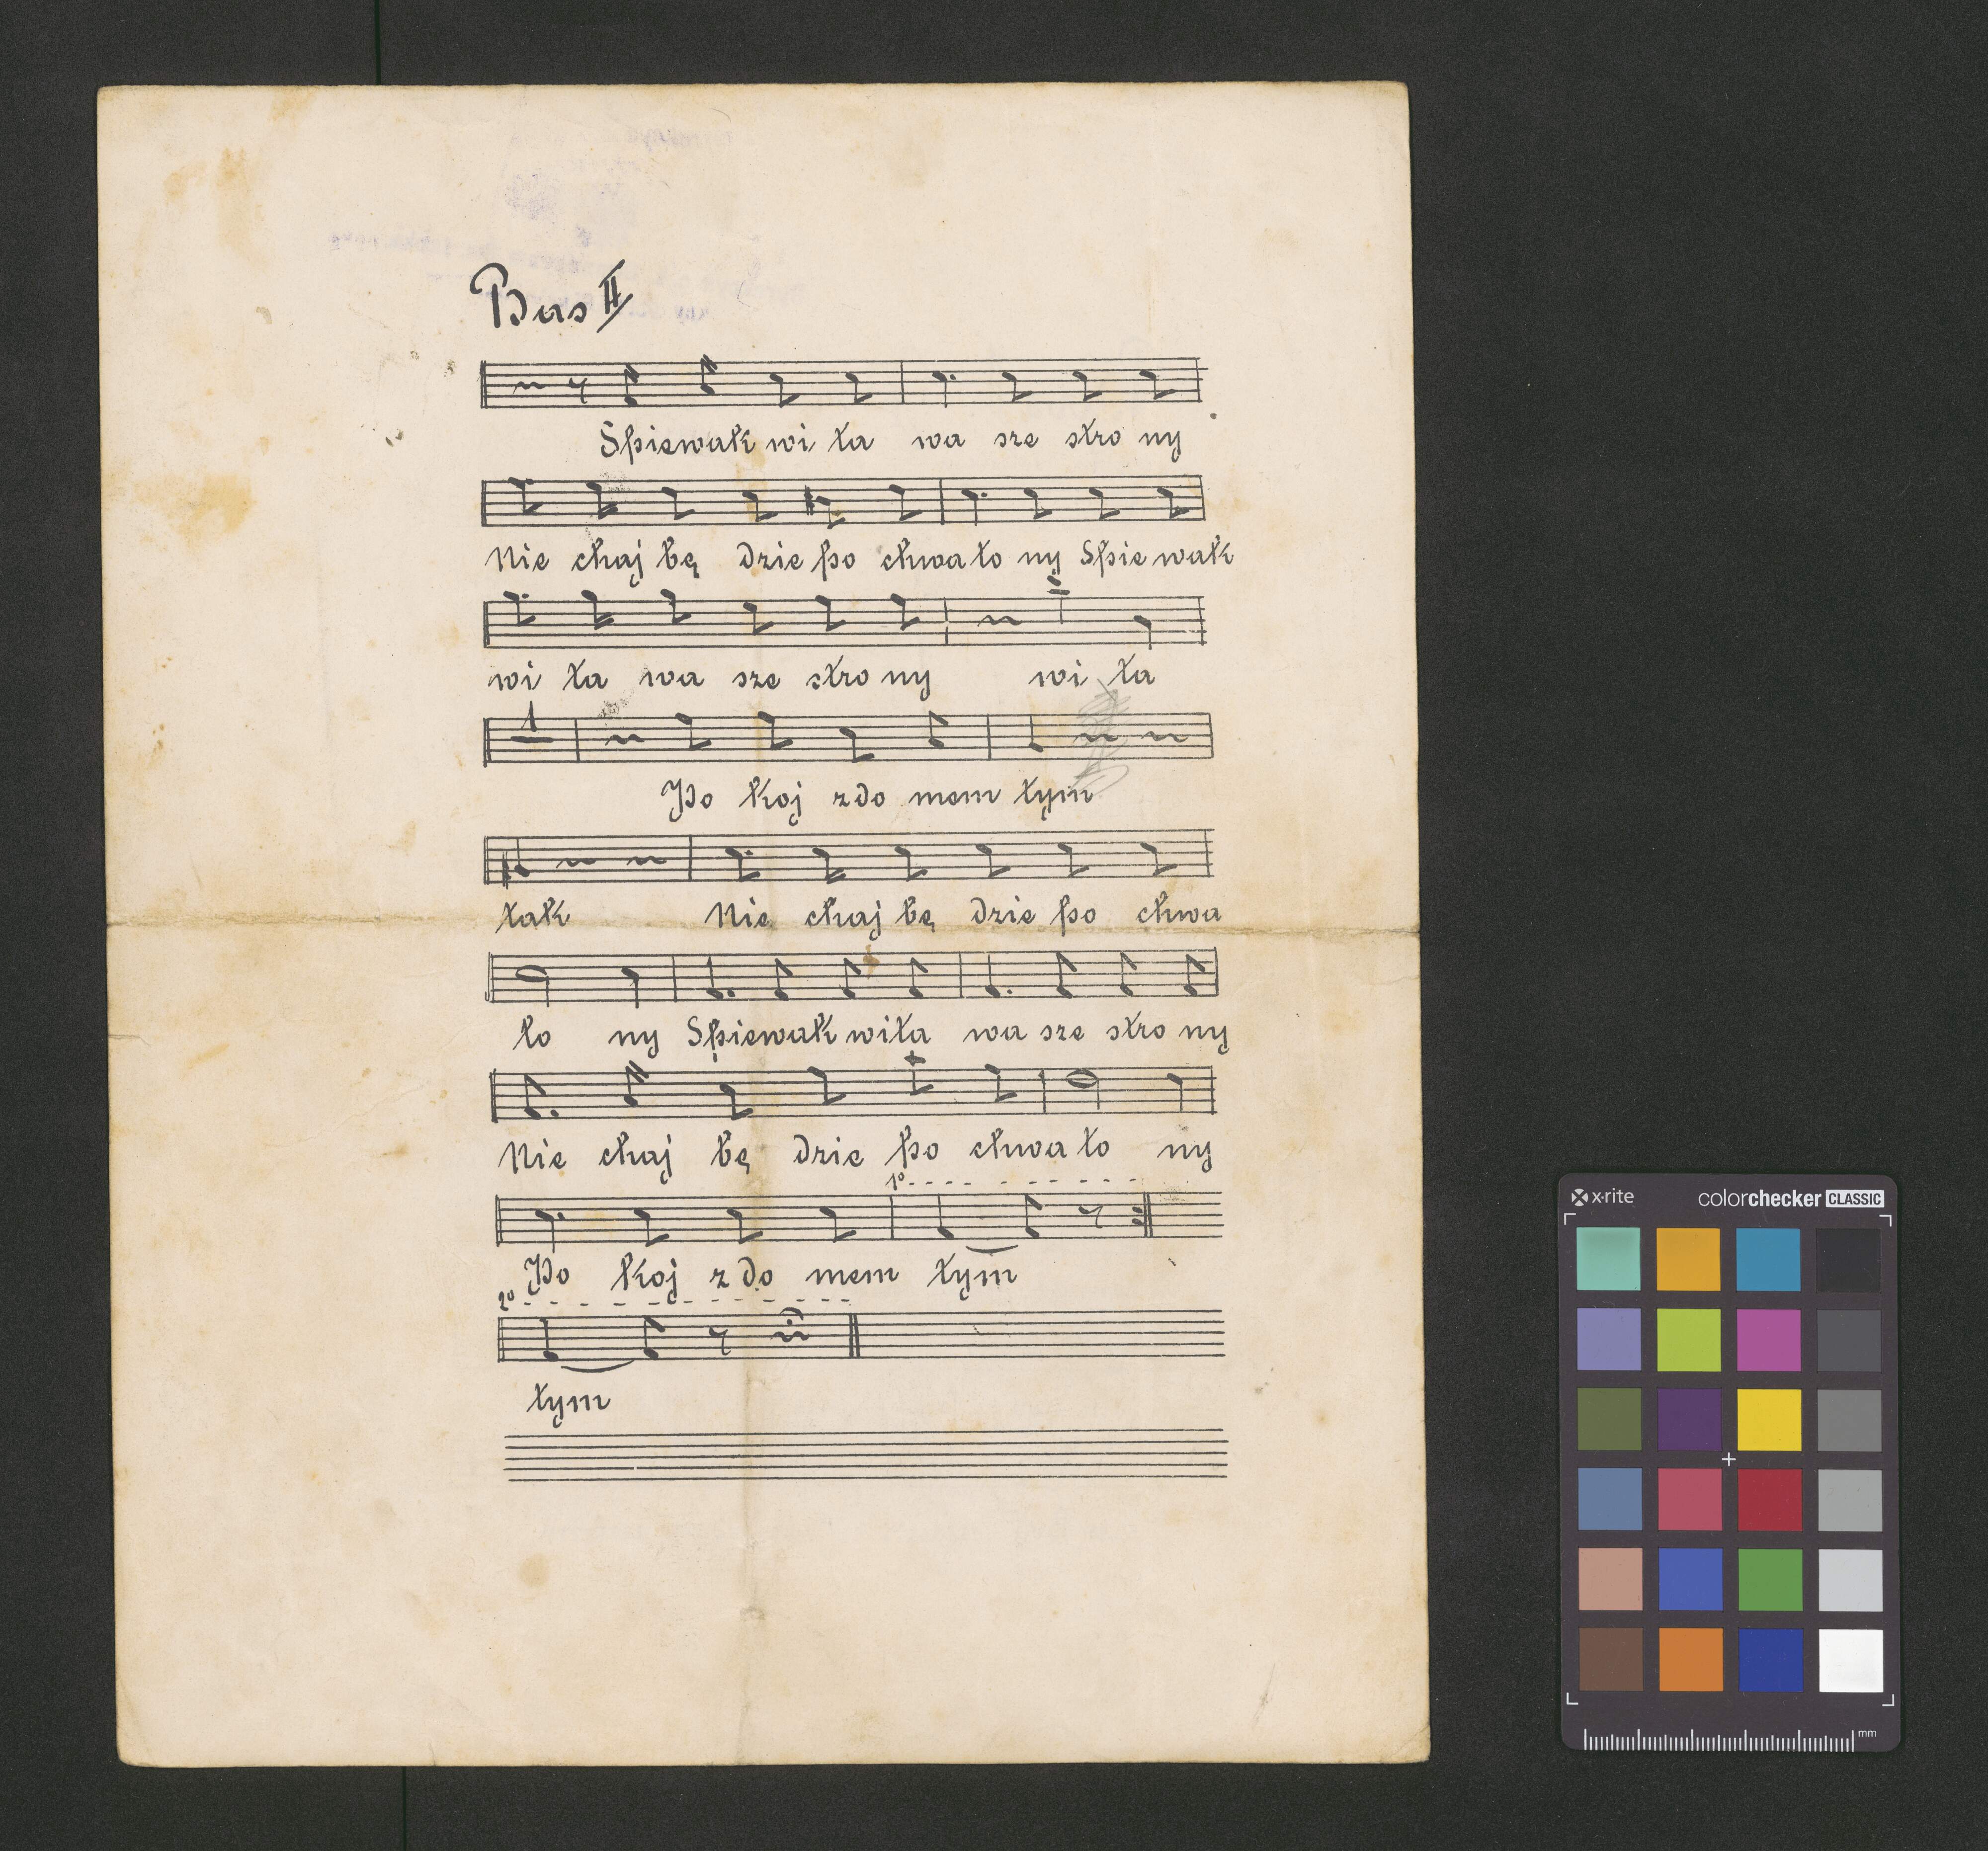 Bas II
Śpiewak wi ta wa sze stro ny
Nie chaj bę dzie po chwa ło ny Śpie wak
wi ta wa sze stro ny wi ta
1
Po koj z do mem tym
tak Nie chaj bę dzie po chwa
ło ny Śpiewak wita wa sze stro ny
Nie chaj bę dzie po chwa ło ny
1º
Po koj z do mem tym
2º
tym
x-rite colorchecker CLASSIC
mm